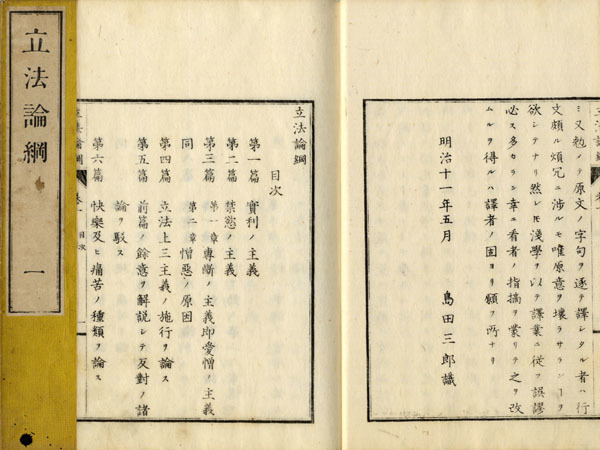 立法論綱 一
ミ又勉メテ原文ノ字句ヲ逐テ譯シタル者ハ行
文頗ル煩冗ニ渉ルモ唯原意ヲ壞ラサランヿヲ
欲シテナリ然レ𪜈淺學ヲ以テ譯業ニ從フ誤謬
必ス多カラン幸ニ看者ノ指摘ヲ蒙リテ之ヲ改
ムルヲ得ルハ譯者ノ固ヨリ願フ所ナリ
明治十一年五月 島田三郎識
立法論綱
目次
第一篇 實利ノ主義
第二篇 禁慾ノ主義
第三篇 第一章 專斷ノ主義即愛憎ノ主義
同 第二章 憎惡ノ原因
第四篇 立法上三主義ノ施行ヲ論ス
第五篇 前篇ノ餘意ヲ解説シテ反對ノ諸
論ヲ駁ス
第六篇 快樂及ヒ痛苦ノ種類ヲ論ス
立法論綱 卷一 目次 一